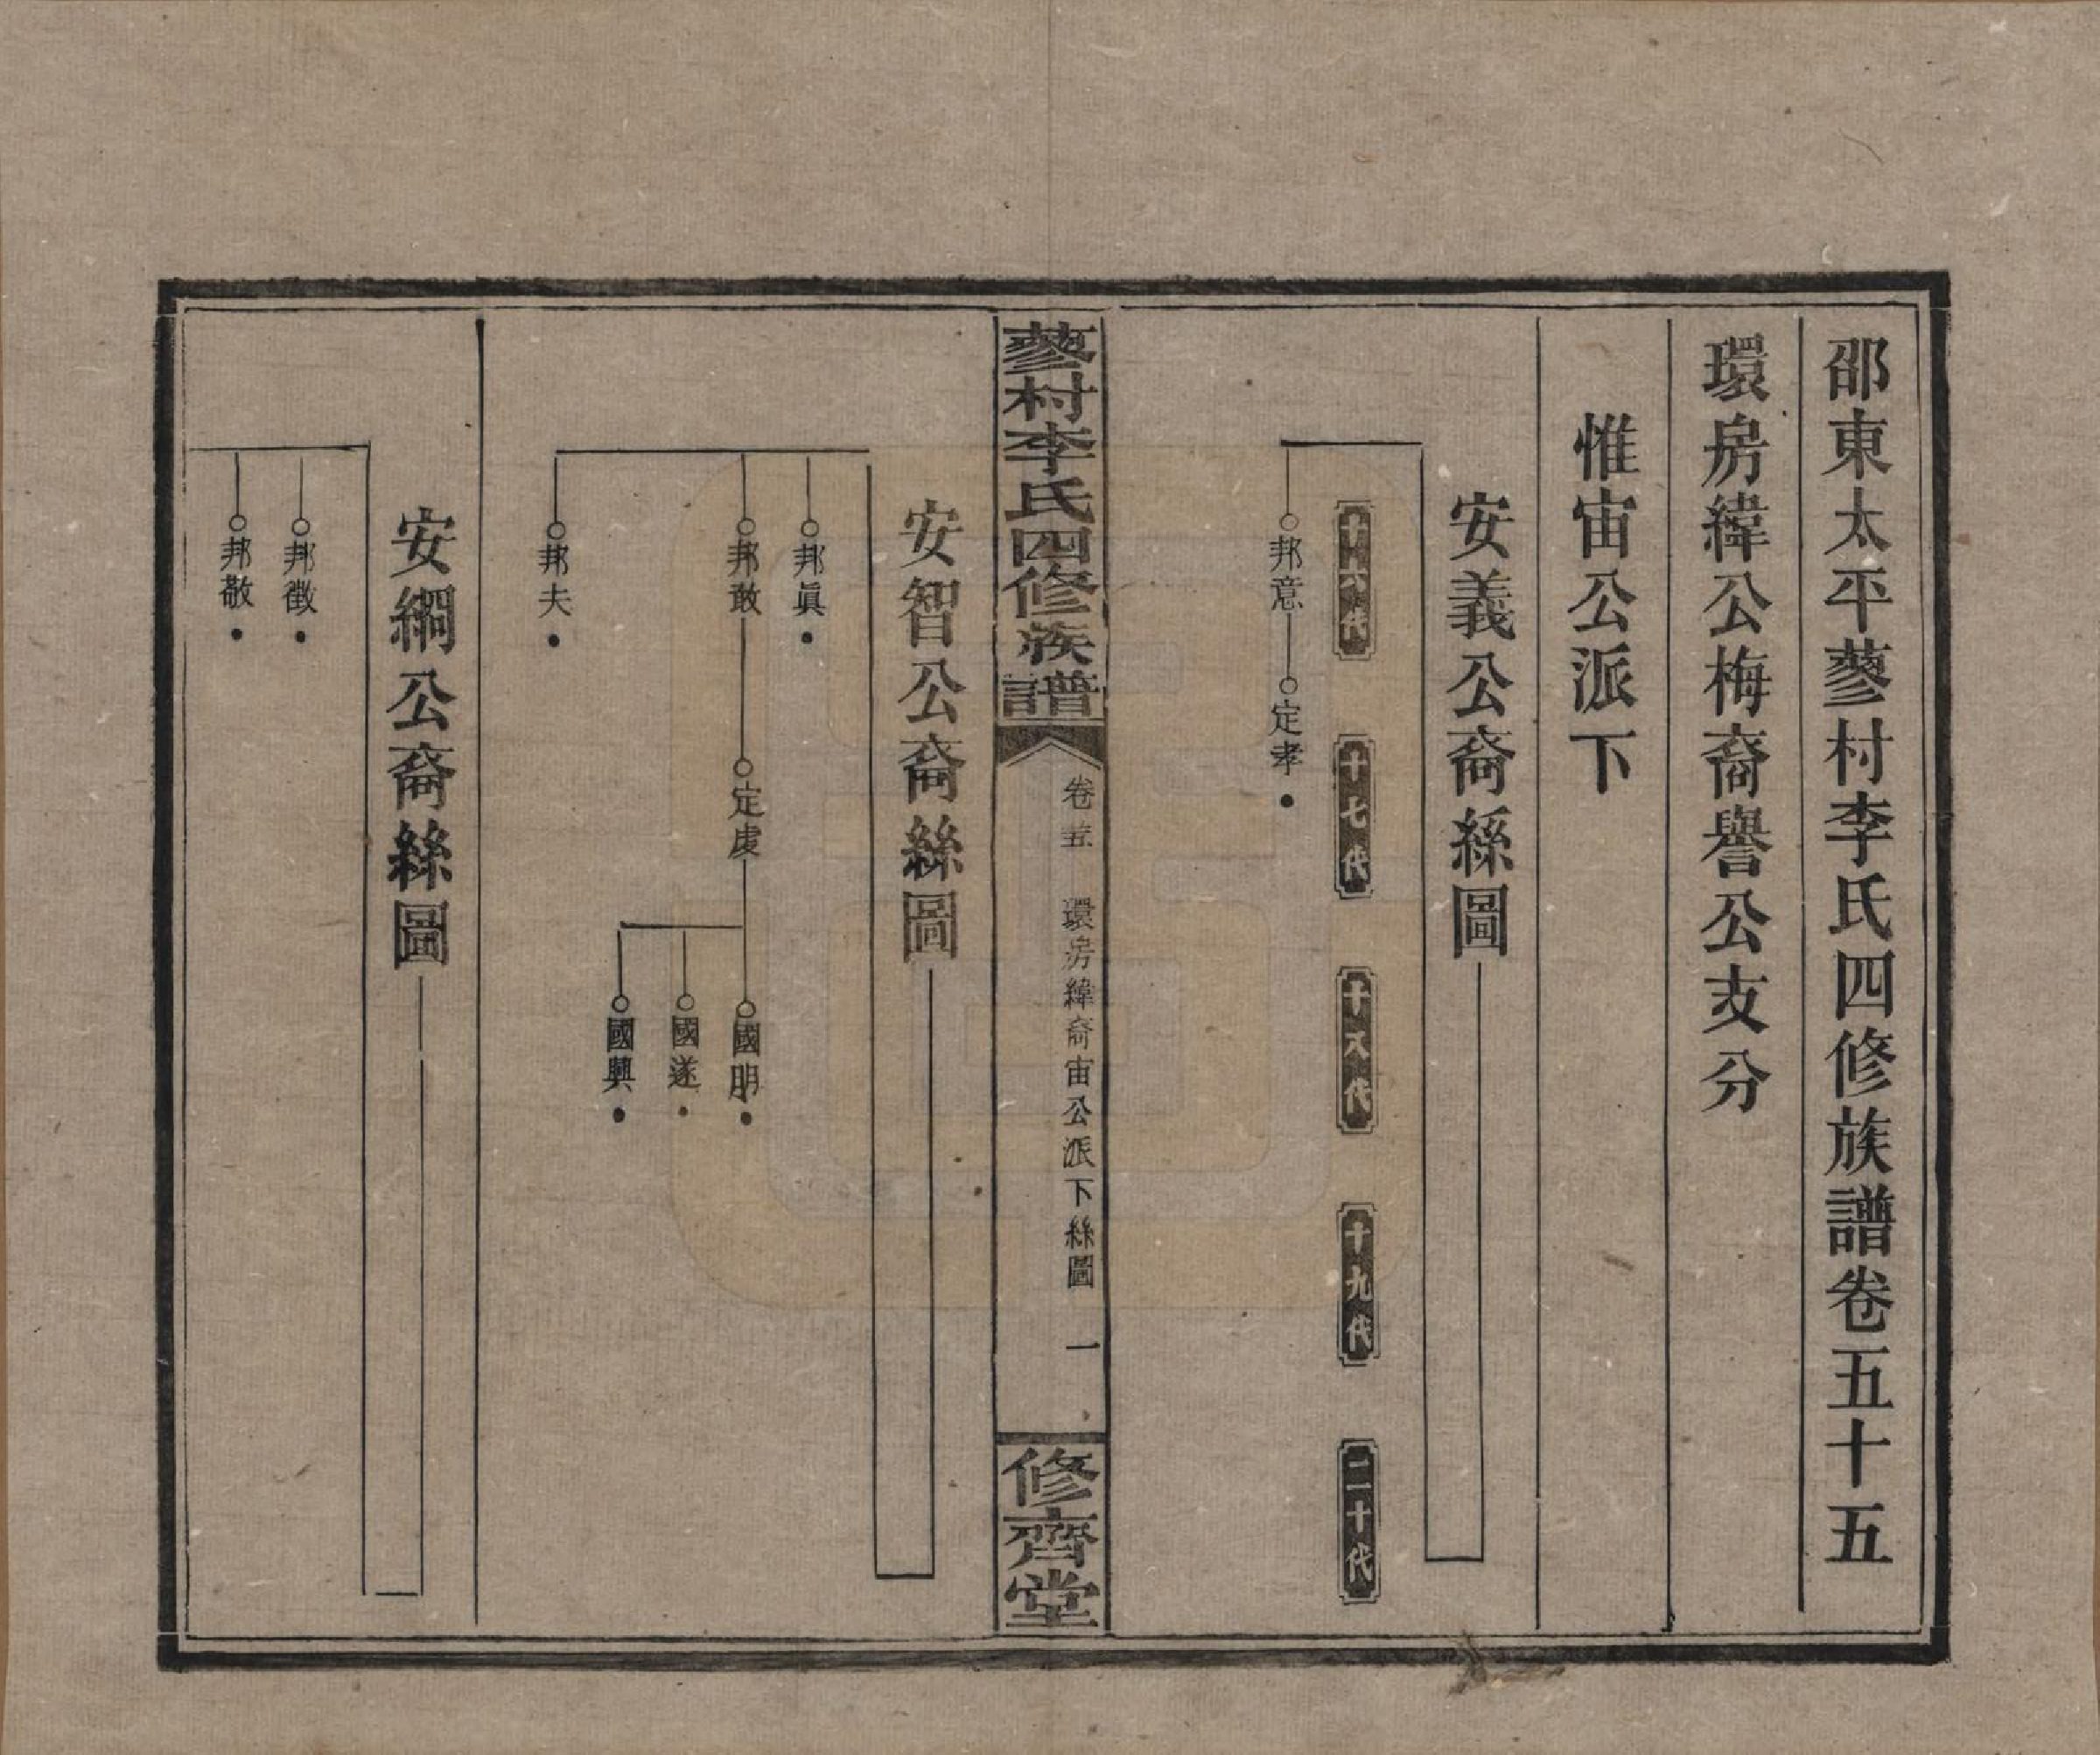 邵東太平蓼村李氏四修族譜卷五十五
環房緯公梅裔譽公支分
惟宙公派下
安義公裔絲圖
十六代
十七代
十八代
十九代
二十代
邦意
定孝
蓼村李氏四修族譜
卷五十五
環房緯裔宙公派下絲圖
一
修齊堂
安智公裔絲圖
邦眞
邦敢
定虔
國明
國遂
國興
邦夫
安綱公裔絲圖
邦徵
邦敬